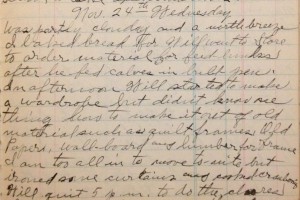 Nov. 24th Wednesday
Was partly cloudy and a north breeze
I baked bread for Will went to store
to order material for feed bunks
after he fed calves in built pen
In afternoon Will started to make
a wardrobe but didn't know
thing how to make it out of old
material such as quilt frames
Papers, wallboard and lumber for frame
I am too all in to move to suit, but
ironed some curtains and
Will quit 5 p.m. to do the chores